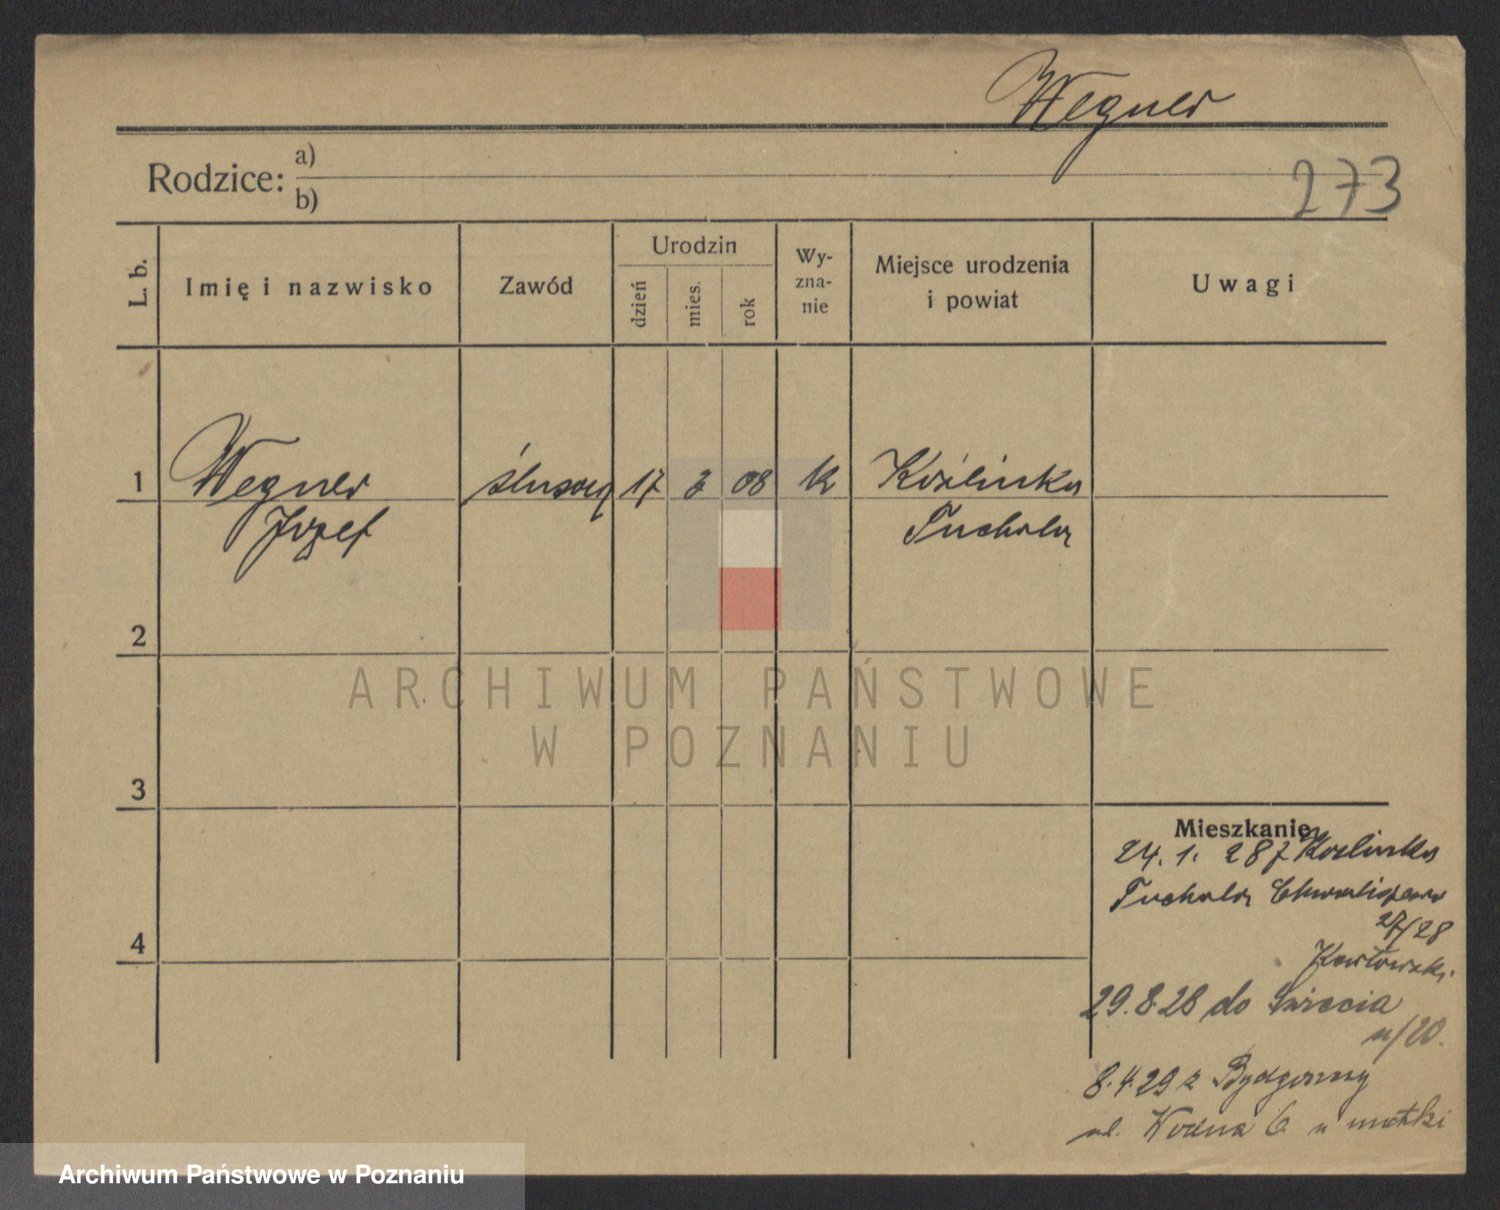 Wegner
Rodzice: a)
b)
273
L. b.
Imię i nazwisko
Zawód
Urodzin
dzień
mies.
rok
Wy-
zna-
nie
Miejsce urodzenia
i powiat
Uwagi
1
Wegner
Józef
ślusarz
17
3
08
rk
Koślinka
Tuchola
2
3
4
Mieszkanie
24. 1. 28 z Koslinka
Tuchola
27/28
29.8.28 do Świecia
n/20.
8.4.29 z Bydgoszczy
ul. Wodna 6 u matki
ARCHIWUM PAŃSTWOWE
W POZNANIU
Archiwum Państwowe w Poznaniu